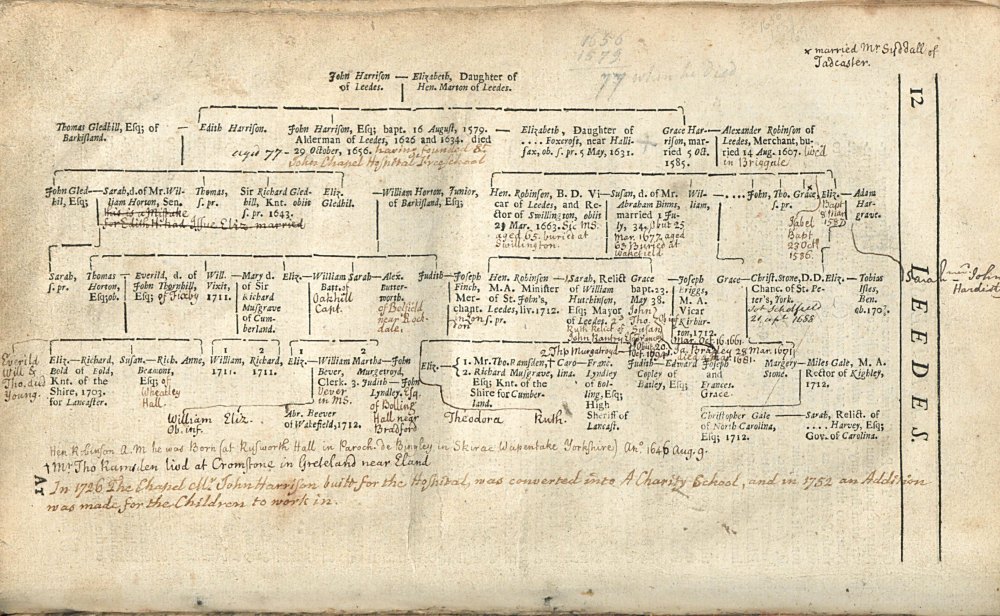 1656
1579
77 when he died
x married Mr Syddall of
Tadcaster.
12
LEEDES.
John Harrison — Elizabeth, Daughter of
of Leedes. Hen. Marton of Leedes.
Thomas Gledhill, Esq; of
Barkisland.
Edith Harrison.
John Harrison, Esq; bapt. 16 August, 1579.
Alderman of Leedes, 1626 and 1634. died
29 October, 1656. having founded St
aged 77
John Chapel Hospital Freeschool
Elizabeth, Daughter of
.... Foxcroft, near Hali-
fax, ob. s. pr. 5 May, 1631.
Grace Har-
rison, mar-
ried 5 Oct.
1585.
Alexander Robinson of
Leedes, Merchant, bu-
ried 14 Aug. 1607. liv'd
in Briggate
John Gled-
hil, Esq;
Sarah, d. of Mr. Wil-
liam Horton, Sen.
this is a Mistake
for Edith H. had Issue Eliz. married
Thomas,
s. pr.
Sir Richard Gled-
hill, Knt. obiit
s. pr. 1643.
Eliz.
Gledhill.
William Horton, Junior,
of Barkisland, Esq;
Hen. Robinson, B. D. Vi-
car of Leedes, and Re-
ctor of Swillington, obiit
29 Mar. 1663. Sic MS.
aged 65. buried at
Swillington.
Susan, d. of Mr.
Abraham Binns,
married 1 Ju-
ly, 34. but 25
Mar. 1677. aged
63 Buried at
Wakefield
Wil-
liam,
....
John, Tho.
s. pr.
Grace
Isabel
Bapt
23 Octr
1596.
Eliz.
Bapt
8 Mar
Adam
Har-
grave.
Sarah
John
Hardist
Sarah,
s. pr.
Thomas
Horton,
Esq; ob.
Everild, d. of
John Thornhill,
Esq; of Fixby
Will.
Vixit,
1711.
Mary d.
of Sir
Richard
Musgrave
of Cum-
berland.
Eliz.
William
Batt, of
Oakhill
Capt.
Sarah
Alex.
Butter-
worth.
of Belfield
near Roch-
dale.
Judith
Joseph
Finch,
Mer-
chant.
Lon-
don
Hen. Robinson
M. A. Minister
of St. John's,
Leedes, liv. 1712.
Sarah, Relict
of William
Hutchinson,
Esq; Mayor
of Leedes. 2d
Ruth Relict of
John Rantry
Grace
bapt. 23.
May 38.
John
Tho.
Susan
Joseph
Briggs,
M. A.
Vicar
of Kirbur-
ton, 1712.
Mar. Oct 16 1661.
Grace
Christ. Stone, D. D.
Chanc. of St. Pe-
ter's, York.
Eliz.
Tobias
Isles,
Ben.
ob. 1703.
Everild
Will &
Tho. died
Young.
Eliz.
Richard,
Bold of Bold,
Knt. of the
Shire, 1703.
for Lancaster.
Susan.
Rich.
Beaumont,
Esq; of
Wheatley
Hall.
Anne,
1711.
1
William,
1711.
2
Richard,
1711.
1
Eliz.
William
Bever,
Clerk. 3.
Bever
in MS.
Abr. Beever
of Wakefield, 1712.
Martha
Murgetroyd,
Judith
John
Lyndley.
John
Esq.
of Bolling
Hall near
Bradford
William Eliz.
Ob. inf.
Eliz.
1. Mr. Tho. Ramsden,
2. Richard Musgrave,
Esq; Knt. of the
Shire for Cumber-
land.
Theodora Ruth.
2 Tho Murgatroyd
Caro-
lina.
Franc.
Lyndley
of Bol-
ling, Esq;
High
Sheriff of
Lancast.
Judith
Copley of
Batley, Esq;
Edward
Joseph
and
Frances.
Grace
Sa. Bradley 29 Mar. 1671
Margery
Stone.
Miles Gale, M. A.
Rector of Kighley,
1712.
Christopher Gale
of North Carolina,
Esq; 1712.
Sarah, Relict. of
.... Harvey, Esq;
Gov. of Carolina.
Hen. Robinson A. M he was Born (at Rusworth Hall in Paroch. de Bingley in Skirae Wapentake Yorkshire) Ano. 1646 Aug. 9.
1 Mr Tho Ramsden livd at Cromstone in Greteland near Eland
In 1726 The Chapel Mr. John Harrison built for the Hospital, was converted into A Charity School, and in 1752 an Addition
was made for the Children to work in.